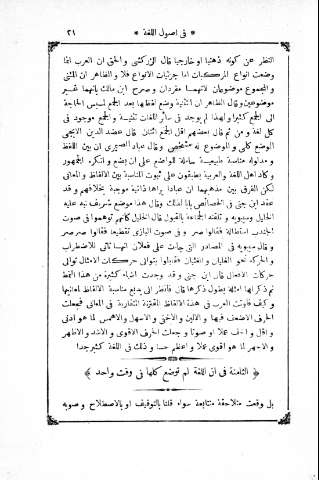 * فى اصول اللغة * ٢١
النظر عن كونه ذهنيا او خارجيا قال الزركشى والحق ان العرب انما
وضعت انواع المركبات اما جزئيات الانواع فلا والظاهر ان المثنى
والمجموع موضوعان لانهما مفردان وصرح ابن مالك بانهما غير
موضوعين وقال الظاهر ان التثنية وضع لفظها بعد الجمع لمسيس الحاجة
الى الجمع كثيرا ولهذا لم يوجد فى سائر اللغات تثنية و الجمع موجود فى
كل لغة و من ثم قال بعضهم اقل الجمع اثنان قال عضد الدين الايجى
الوضع كلى و الموضوع له مشخص وقال عباد الصيمرى ان بين اللفظ
و مدلوله مناسبة طبيعية حاملة للواضع على ان يضع و انكره الجمهور
وكاد اهل اللغة والعربية يطبقون على ثبوت المناسبة بين الالفاظ و المعانى
لكن الفرق بين مذهبيهما ان عبادا يراها ذاتية موجبة بخلافهم و قد
عقد ابن جنى فى الخصائص بابا لذلك وقال هذا موضع شريف نبه عليه
الخليل وسيبويه و تلقته الجماعة بالقبول قال الخليل كانهم توهموا فى صوت
الجندب استطالة فقالوا صر و فى صوت البازى تقطيعا فقالوا صرصر
و قال سيبويه فى المصادر التى جاءت على فعلان انها تأتى للاضطراب
و الحركة نحو الغليان و الغثيان فقابلوا بتوالى حركات الامثال توالى
حركات الافعال قال ابن جنى و قد وجدت اشياء كثيرة من هذا النمط
ثم ذكرها امثلة يطول ذكرها قال فانظر الى بديع مناسبة الالفاظ لمعانيها
و كيف فاوتت العرب فى هذه الالفاظ المقترنة المتقاربة فى المعانى فجعلت
الحرف الاضعف فيها و الالين و الاخفى و الاسهل والاهمس لما هو ادنى
و اقل و اخف عملا او صوتا و جعلت الحرف الاقوى و الاشد و الاظهر
و الاجهر لما هو اقوى عملا و اعظم حسا و ذلك فى اللغة كثير جدا
﴿ الثامنة فى ان اللغة لم توضع كلها فى وقت واحد ﴾
بل وقعت متلاحقة متتابعة سواء قلنا بالتوقيف او بالاصطلاح و صوبه